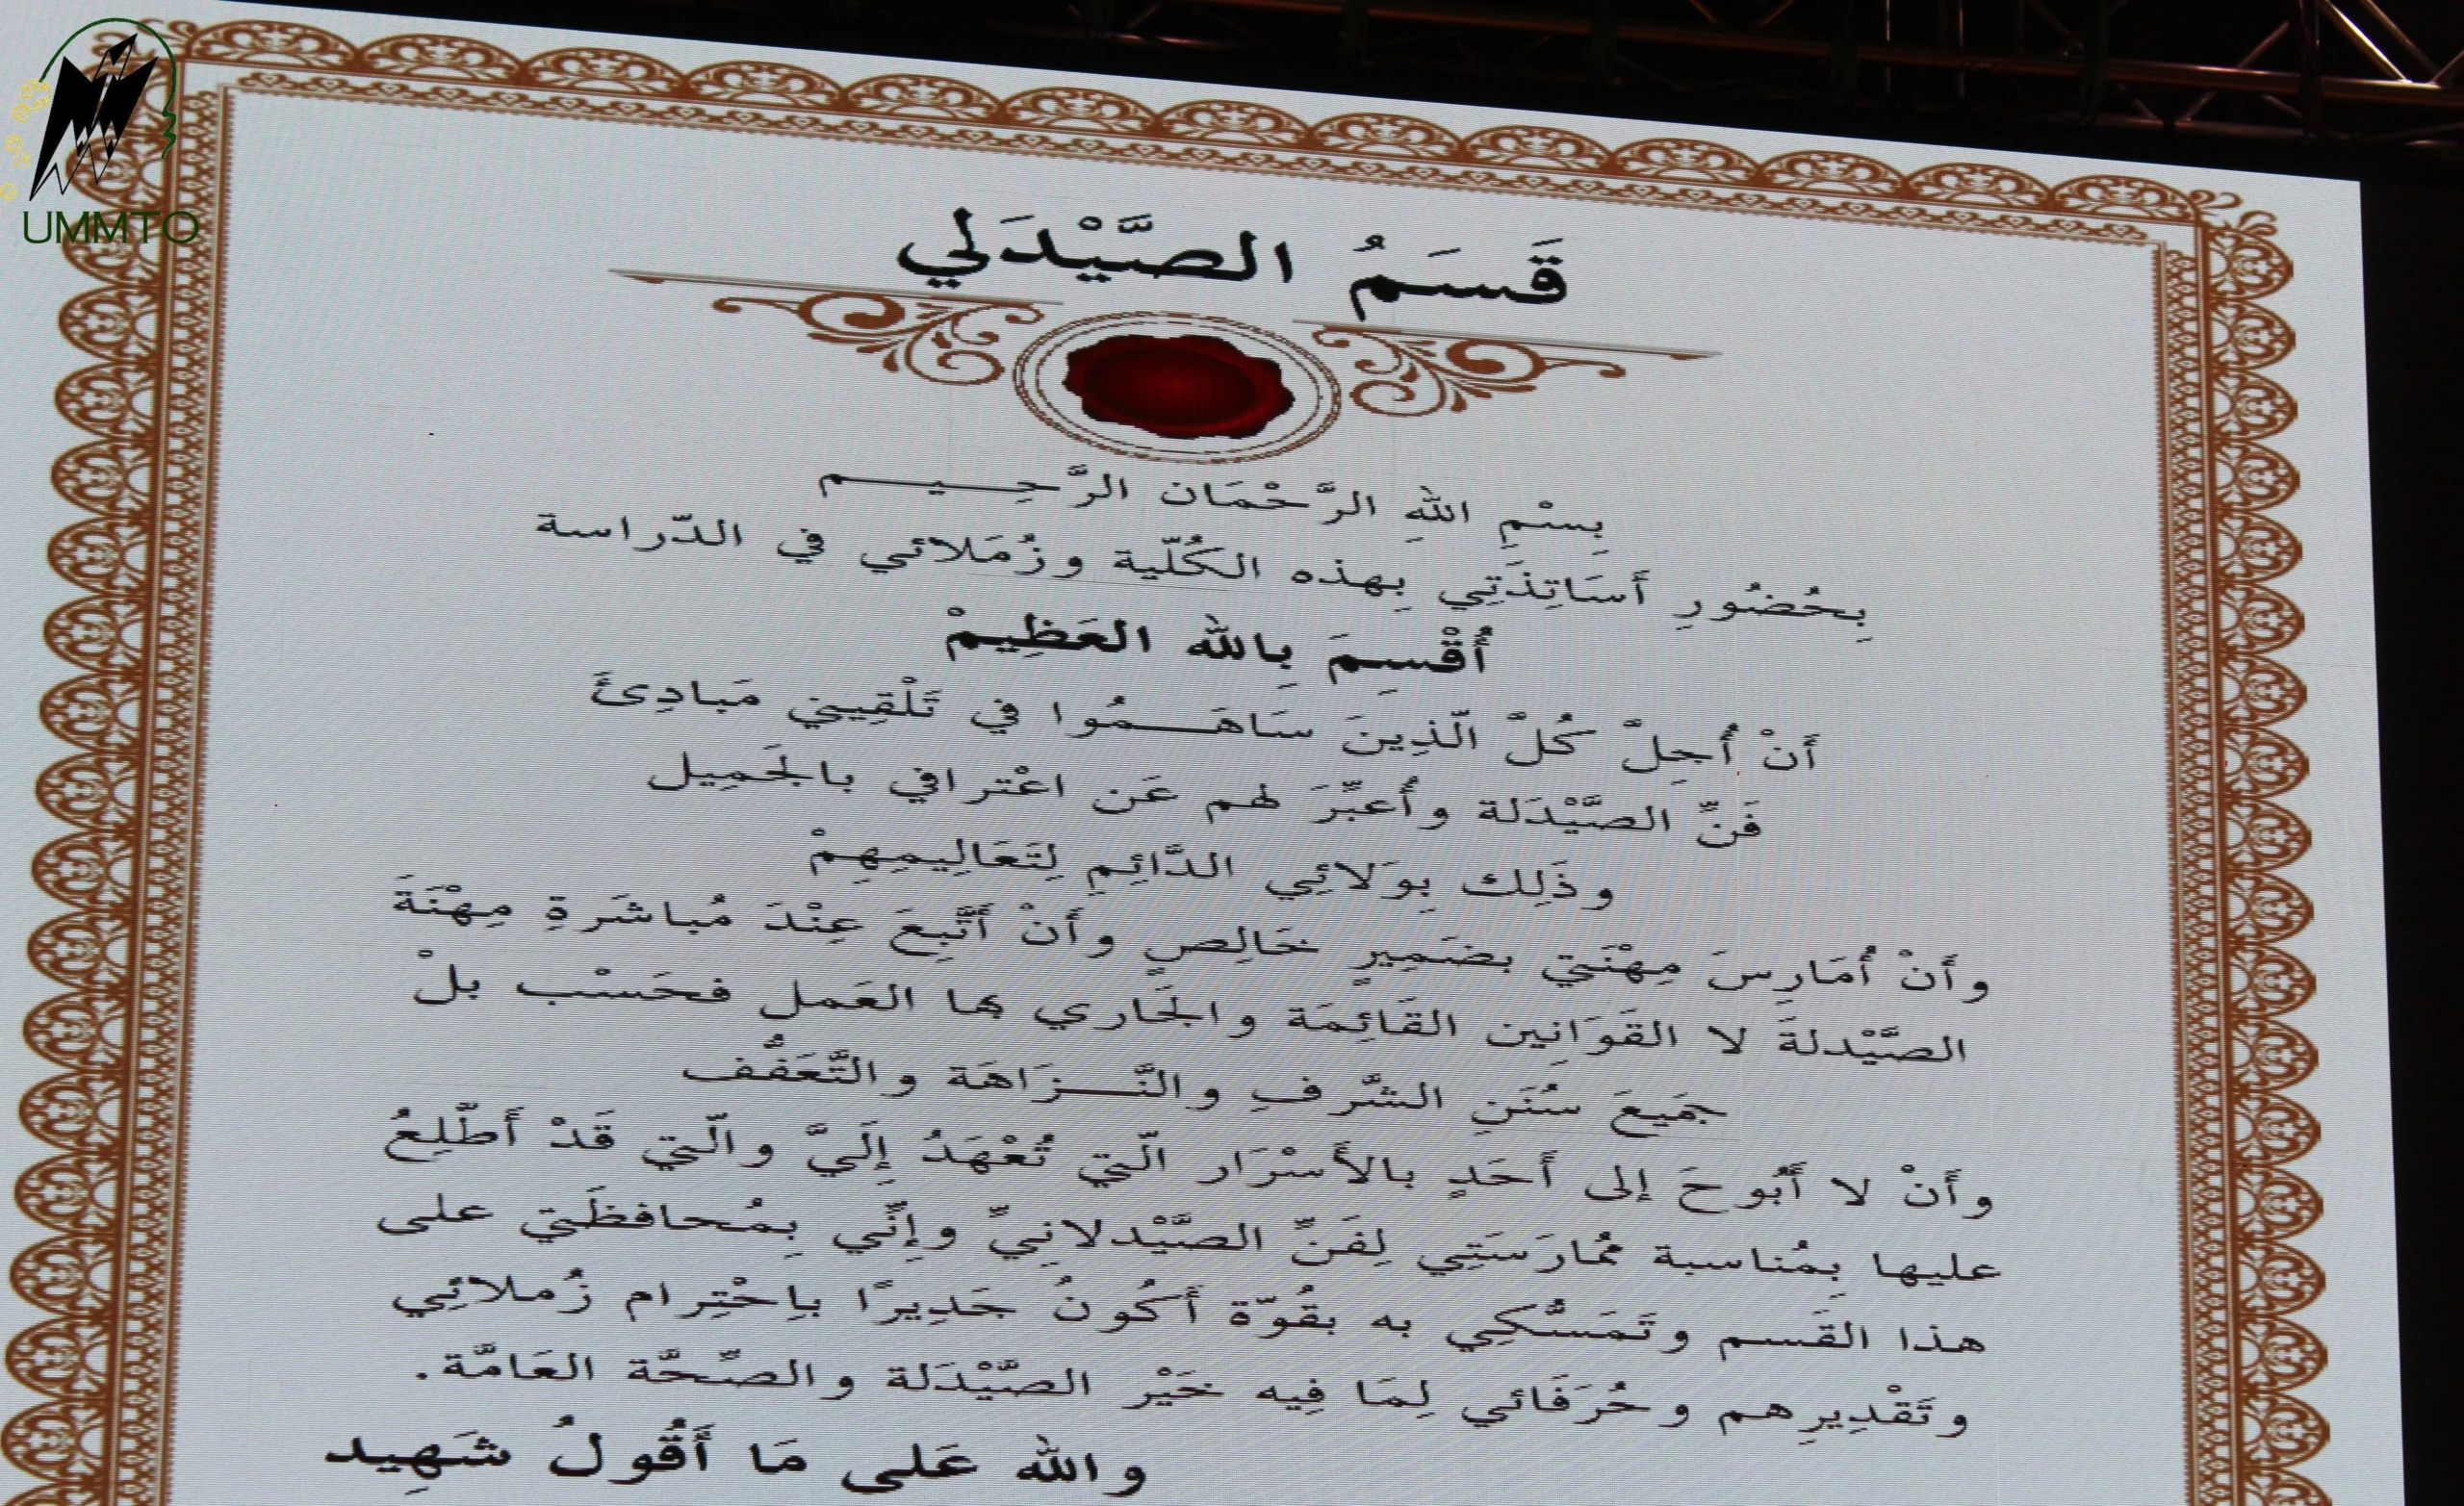 UMMTO
قَسَمُ الصَّيْدَلي
بِسْمِ اللهِ الرَّحْمَان الرَّحِـــيـــــم
بِحُضُورِ أَسَاتِذَتِي بِهذه الكُلّية وزُمَلائي في الدّراسة
أُقْسِمَ بِالله العَظِيمْ
أَنْ أُجِلْ كُلَّ الّذِينَ سَاهَـــمُوا في تَلْقِيني مَبادِئَ
فَنِّ الصَّيْدَلة وأُعبِّرَ لهم عَن اعْترافي بالجَمِيل
وذَلِك بِوَلائِي الدَّائِمِ لِتَعَالِيمِهِمْ
وأَنْ أُمَارِسَ مِهْنَتي بضَمِيرٍ خَالِصٍ وأَنْ أَتَّبِعَ عِنْدَ مُباشَرةِ مِهْنَةَ
الصَّيْدلةَ لا القَوَانِين القَائِمَة والجَاري بها العَمل فحَسْب بلْ
جمَيعَ سُنَنِ الشَّرفِ والنَّـــزَاهَة والتَّعَفُّف
وأَنْ لا أَبُوحَ إلى أَحَدٍ بالأَسْرَار الّتي تُعْهَدُ إِلَيَّ والّتي قَدْ أَطّلِعُ
عليها بِمُناسبة ممُارَسَتِي لِفَنِّ الصَّيْدلانِيِّ وإِنِّني بِمُحافظَتي على
هذا القَسم وتَمَسُّكِي به بقُوّة أَكُونُ جَدِيرًا بِاحْتِرام زُملائِي
وتَقْدِيرِهم وحُرَفَائي لِمَا فِيه خَيْر الصَّيْدَلة والصِّحَّة العَامَّة.
والله عَلى مَا أَقُولُ شَهِيد